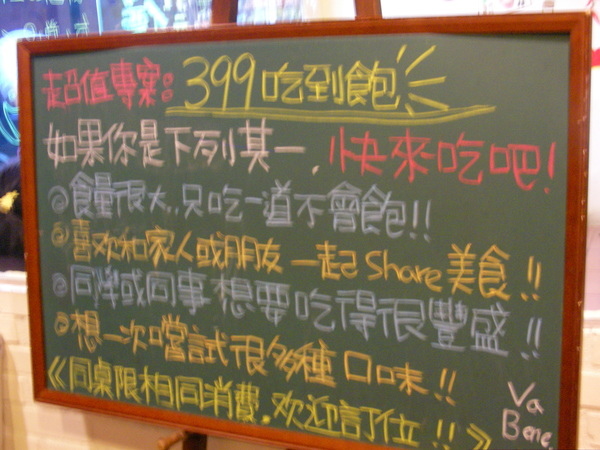 超值專案:399吃到飽
如果你是下列其一,快來吃吧!
◎食量很大..只吃一道不會飽!!
◎喜欢和家人或朋友一起Share美食!!
◎同學或同事想要吃得很豐盛!!
◎想一次嚐試很多種口味!!
《同桌限相同消費.欢迎訂位!!》
Va
Bene.